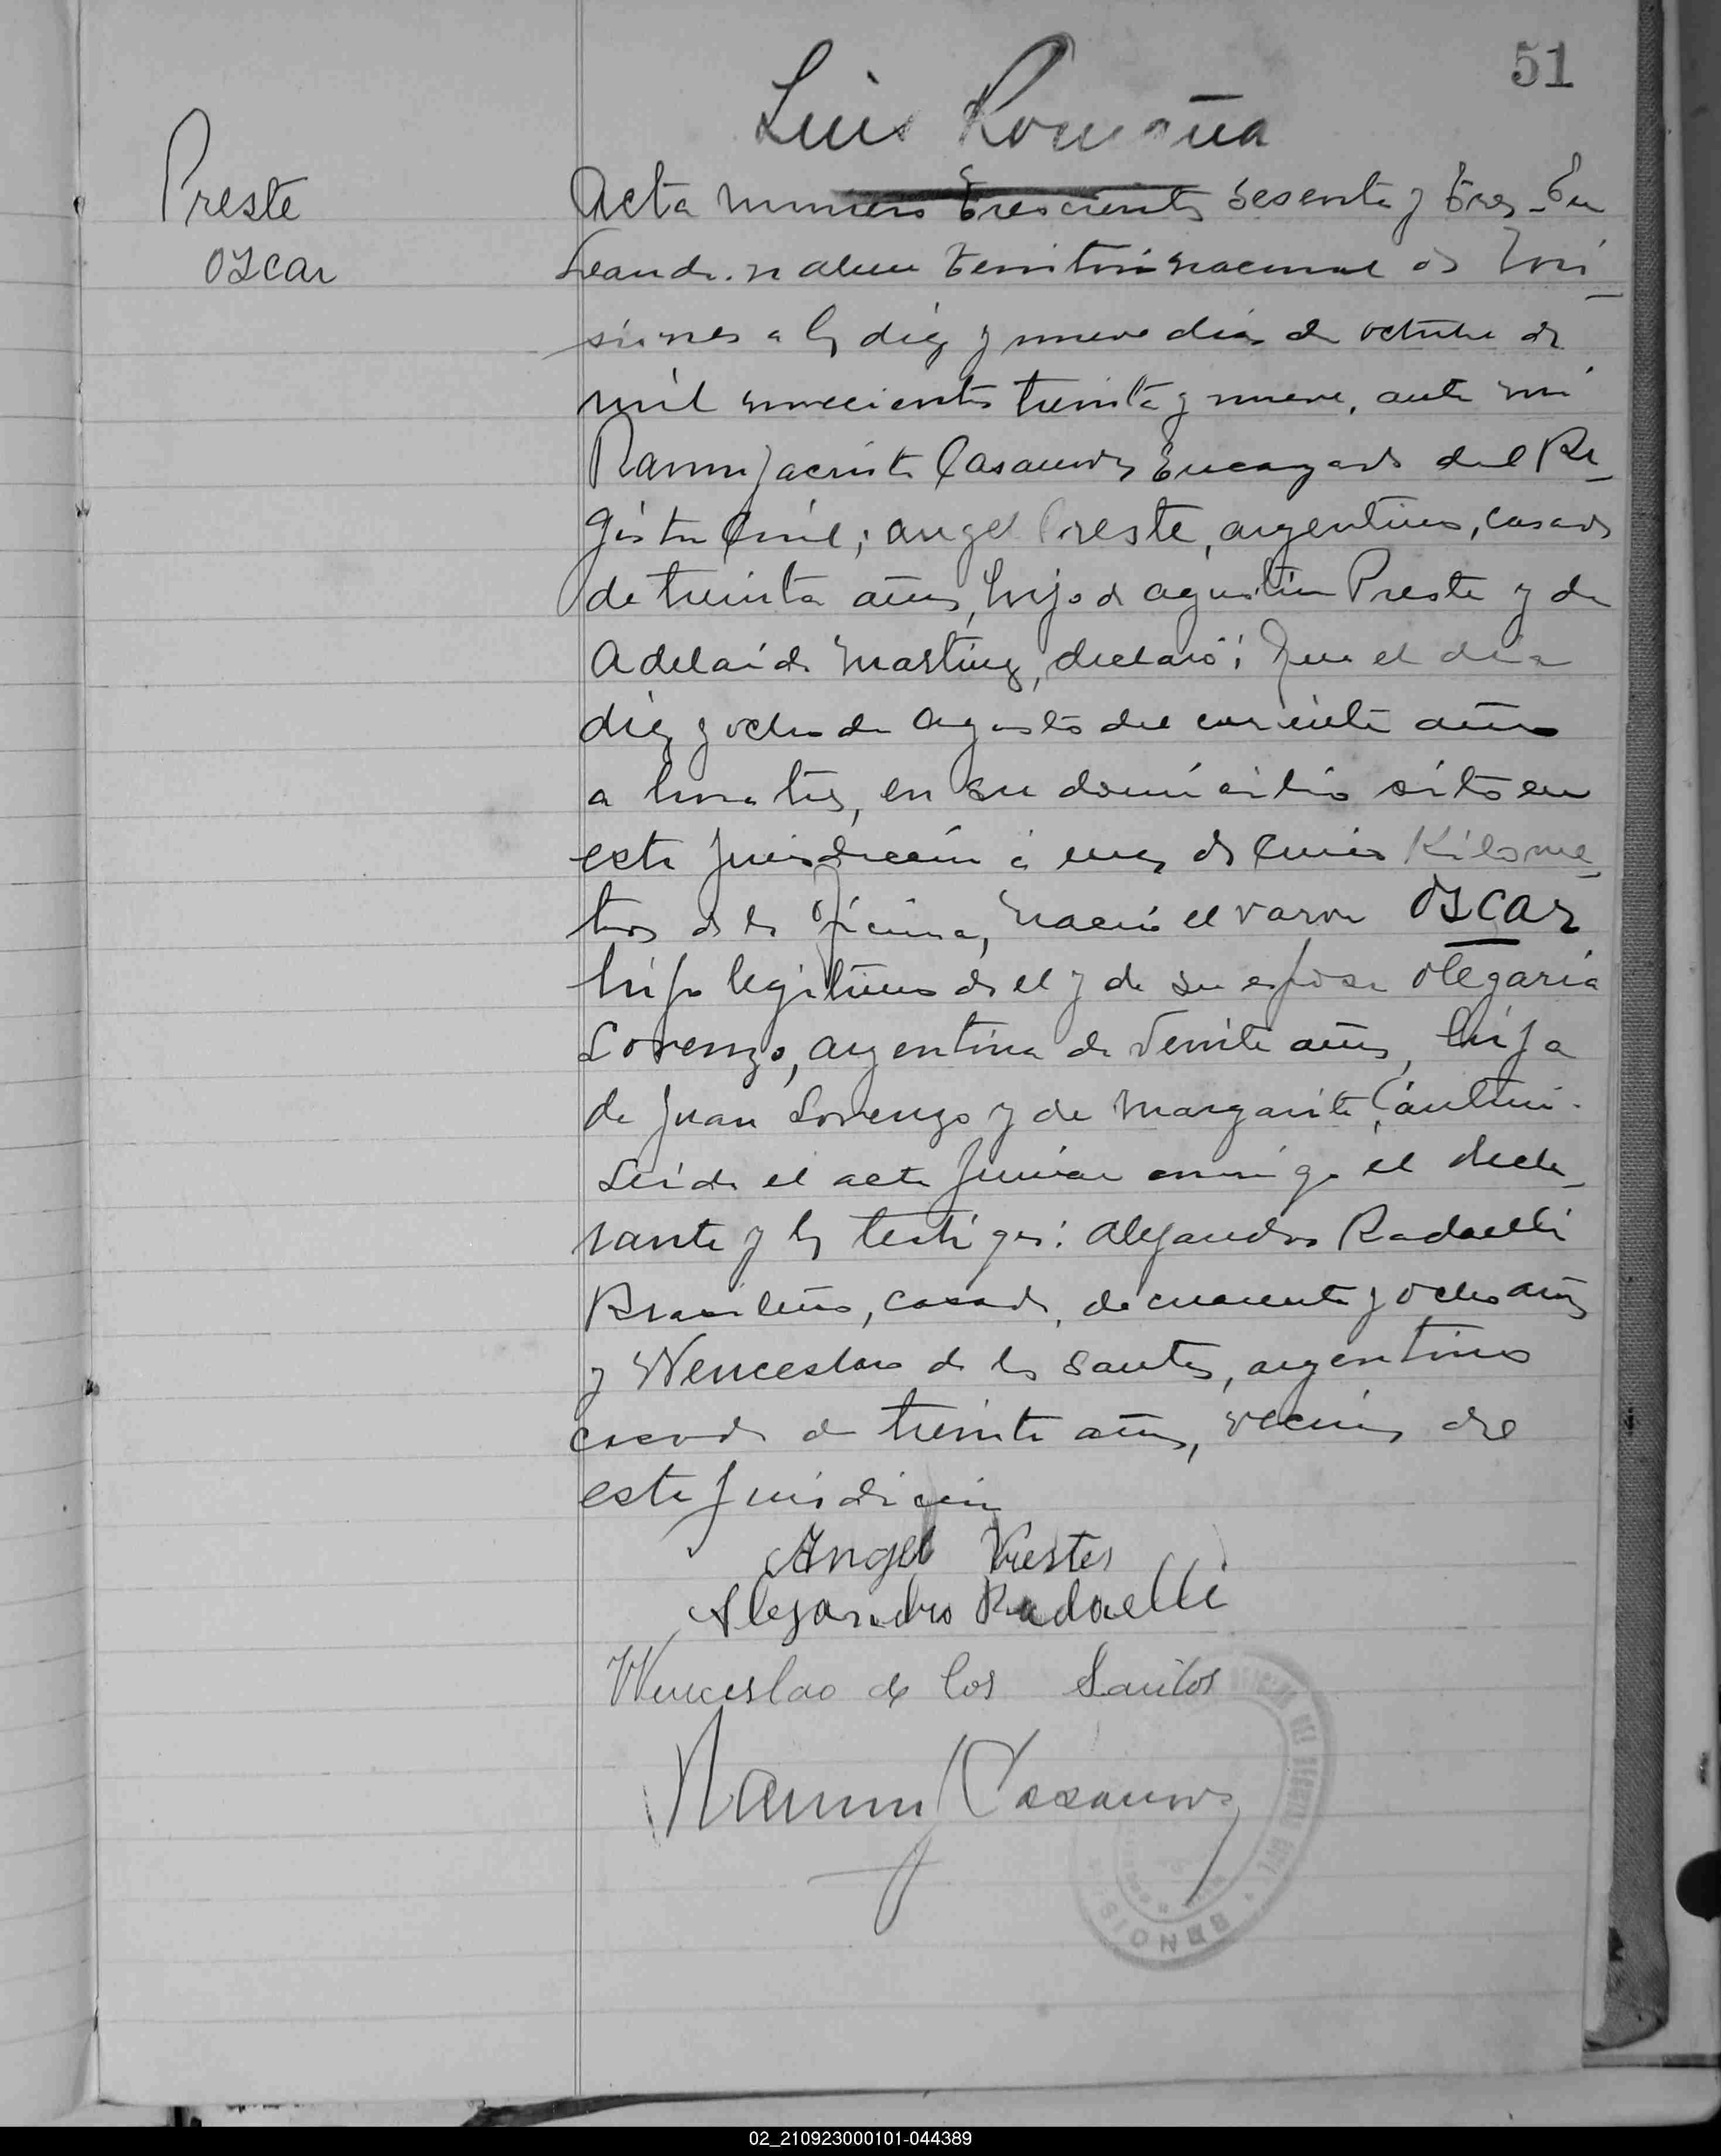 51
Luis
Preste
Oscar
Acta numero trescientos sesenta y tres. En
Leandro N Alem territorio nacional de Mi-
siones a los diez y nueve dias de octubre de
mil novecientos treinta y nueve, ante mi
Ramon Jacinto Casanova Encargado del Re-
gistro Civil; Angel Preste, argentino, casado
de treinta años, hijo de Agustin Preste y de
Adelaida Martinez, declaró: Que el dia
diez y ocho de Agosto del corriente año
a hora tres, en su domicilio sito en
esta jurisdicción a unos Kilome-
tros de la Oficina, nació el varon Oscar
hijo legitimo de el y de su esposa Olegaria
Lorenzo, argentina de veinte años, hija
de Juan Lorenzo y de Margarita
Leida el acta firman conmigo el decla-
rante y los testigos: Alejandro Radaelli
Brasileño, casado, de cuarenta y ocho años
y Wenceslao de los Santos, argentino
casado de treinta años, vecinos de
esta jurisdicción
Angel Prestes
Alejandro Radaelli
Wenceslao de los Santos
Ramon J Casanova
02_210923000101-044389